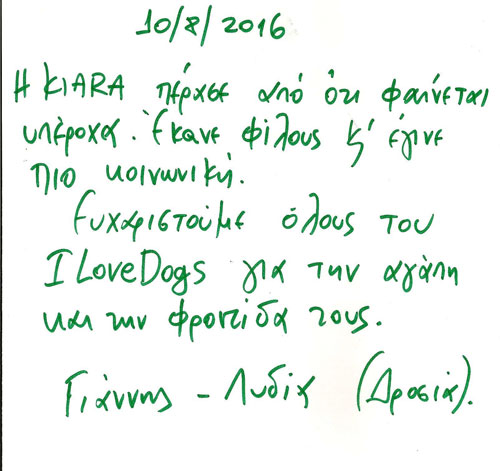 10/8/2016
Η KIARA πέρασε από ότι φαίνεται
υπέροχα. Έκανε φίλους κ' έγινε
πιο κοινωνική.
Ευχαριστούμε όλους του
I LoveDogs για την αγάπη
και την φροντίδα τους.
Γιάννης - Λυδία (Δροσιά).